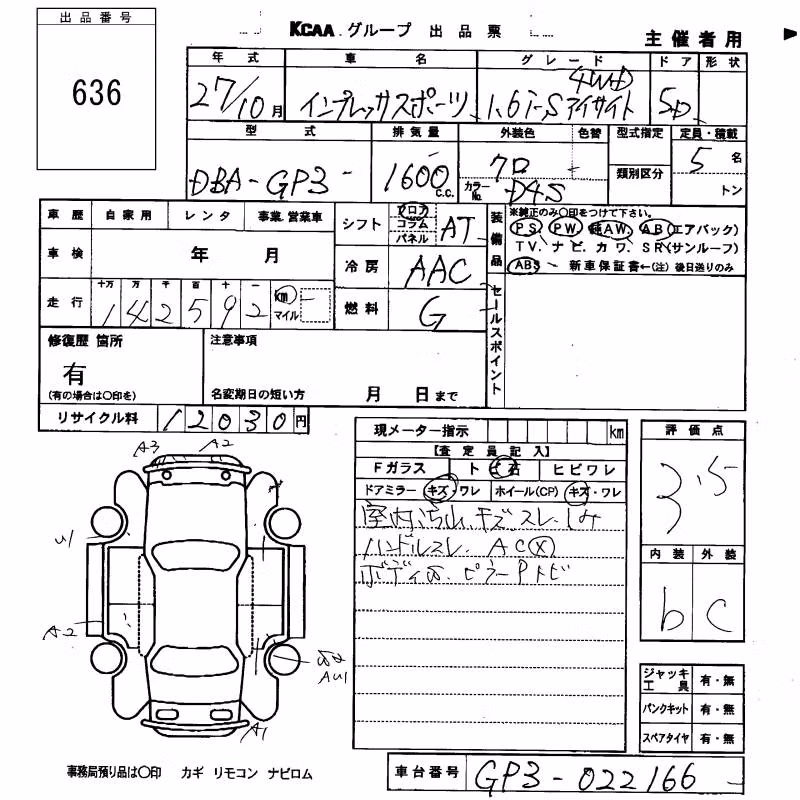 出品番号
636
KCAA グループ 出品票
主催者用
年式 車名 グレード ドア 形状
27/10月 インプレッサスポーツ 1.6i-S アイサイト 4WD 5D
型式 排気量 外装色 色替 型式指定 定員・積載
DBA-GP3 1600 c.c. クロ カラーNo. D4S 類別区分 5名 トン
車歴 自家用 レンタ 事業.営業車
車検 年 月
走行 十万 万 千 百 十 一
142592 km マイル
シフト フロア コラム パネル AT
冷房 AAC
燃料 G
装備品
※純正のみ○印をつけて下さい。
PS PW 純AW、AB(エアバック)
TV、ナビ、カワ、SR(サンルーフ)
ABS 新車保証書←(注)後日送りのみ
セールスポイント
修復歴 箇所
有
(有の場合は○印を)
注意事項
名変期日の短い方 月 日まで
リサイクル料 12030円
現メーター指示 km
【査定員記入】
Fガラス トビ石 ヒビワレ
ドアミラー キズ・ワレ ホイール(CP) キズ・ワレ
室内汚れ キズ スレ しみ
ハンドルスレ AC
ピラーPトビ
評価点
3.5
内装 外装
b C
A3 A2
U1
A2
AU1
A1
ジャッキ工具 有・無
パンクキット 有・無
スペアタイヤ 有・無
事務局預り品は○印 カギ リモコン ナビロム
車台番号 GP3-022166